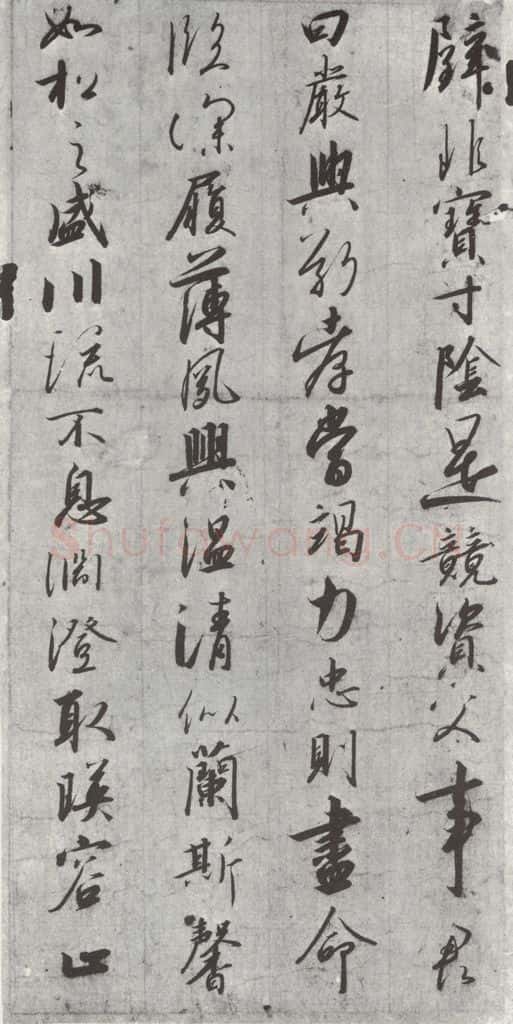 璧非寶寸陰是競資父事君
曰嚴與敬孝當竭力忠則盡命
臨深履薄夙興溫凊似蘭斯馨
如松之盛川流不息淵澄取暎容止
Shufawang.CN